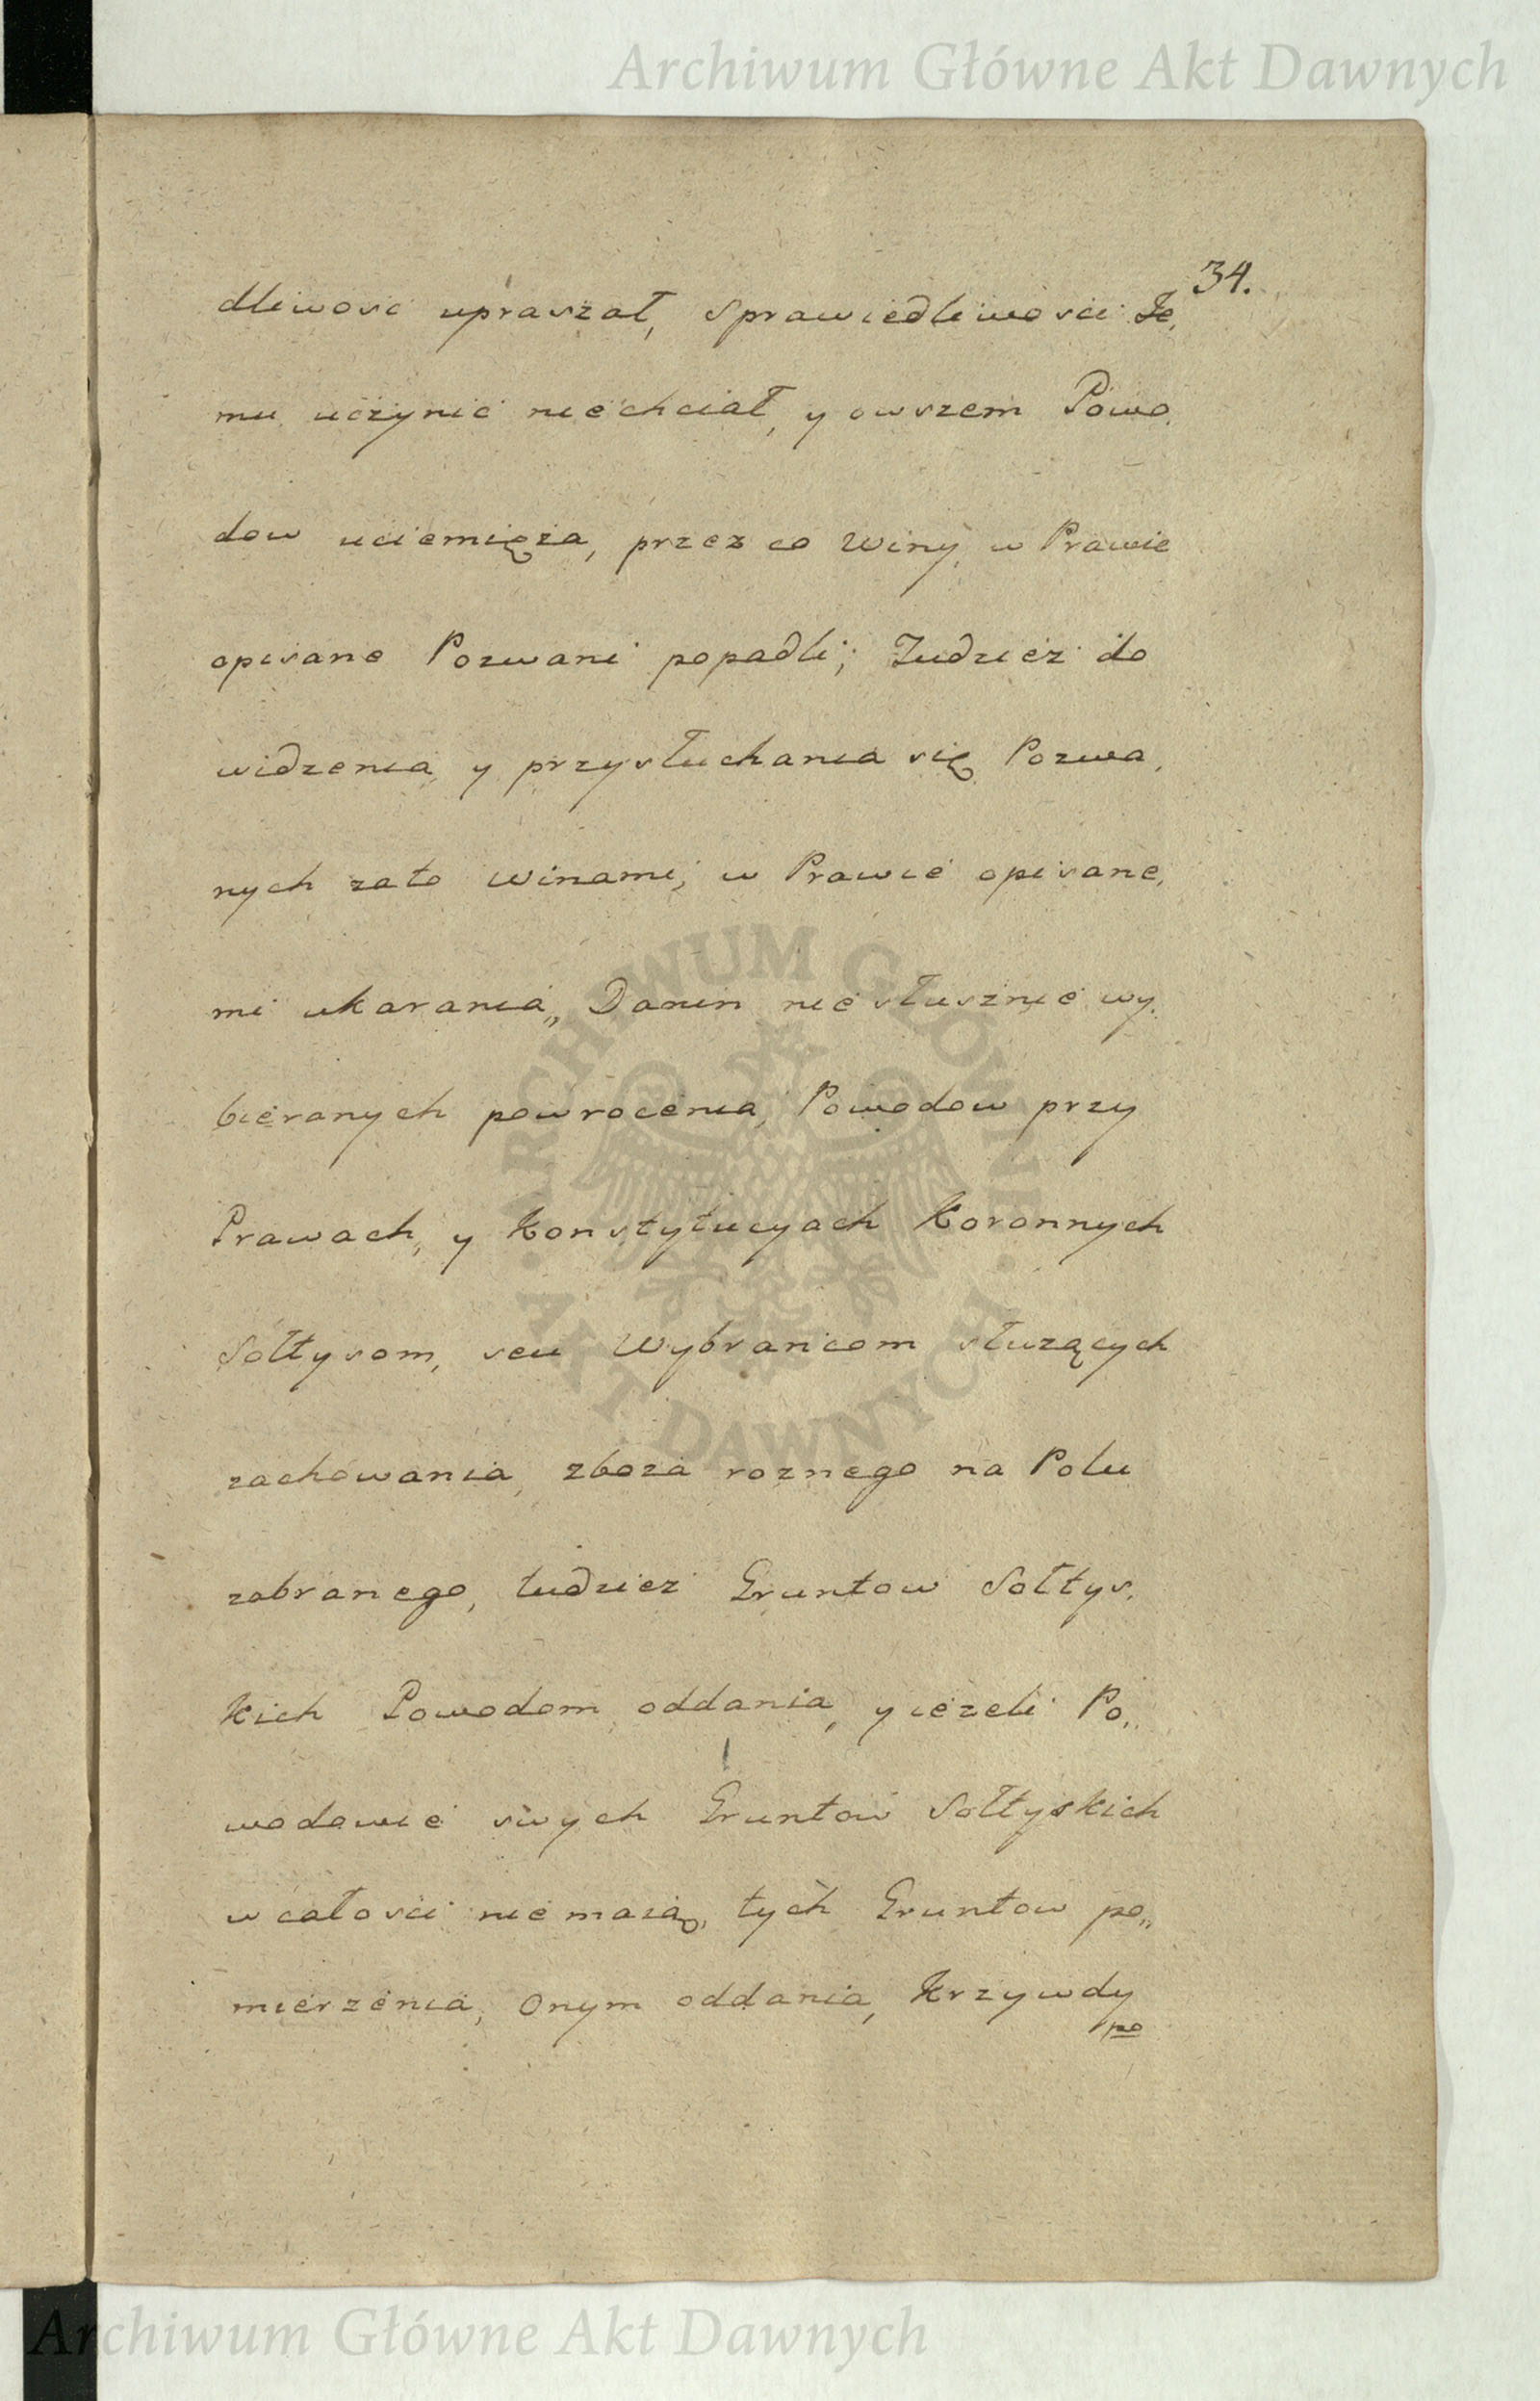 Archiwum Główne Akt Dawnych
34.
dliwosc upraszał, Sprawiedliwosci Je,
mu uczynić niechciał, y owszem Powo,
dow uciemięża, przez co Winy, w Prawie
opisane Pozwani popadli; Tudzież do
widzenia, y przysłuchania się Pozwa,
nych zato winami, w Prawie opisane,
mi ukarania„ Danin niesłusznie wy,
bieranych powrocenia, Powodow przy
Prawach, y Konstytucyach Koronnych
Sołtysom, seu Wybrańcom służących
zachowania, zboża roznego na Polu
zabranego, tudzież Gruntow Sołtys,
kich Powodom oddania, y ieżeli Po„
wodowie swych Gruntow Sołtyskich
w całosci niemaią, tych Gruntow po„
mierzenia, Onym oddania, Krzywdy
po
ARCHIWUM GŁÓWNE
AKT DAWNYCH
Archiwum Główne Akt Dawnych